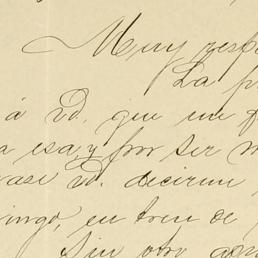 Muy resp
La p
á Vd. que me
a esa, y por ser m
vase Vd. decirme
ingo, en tren de
Sin otro